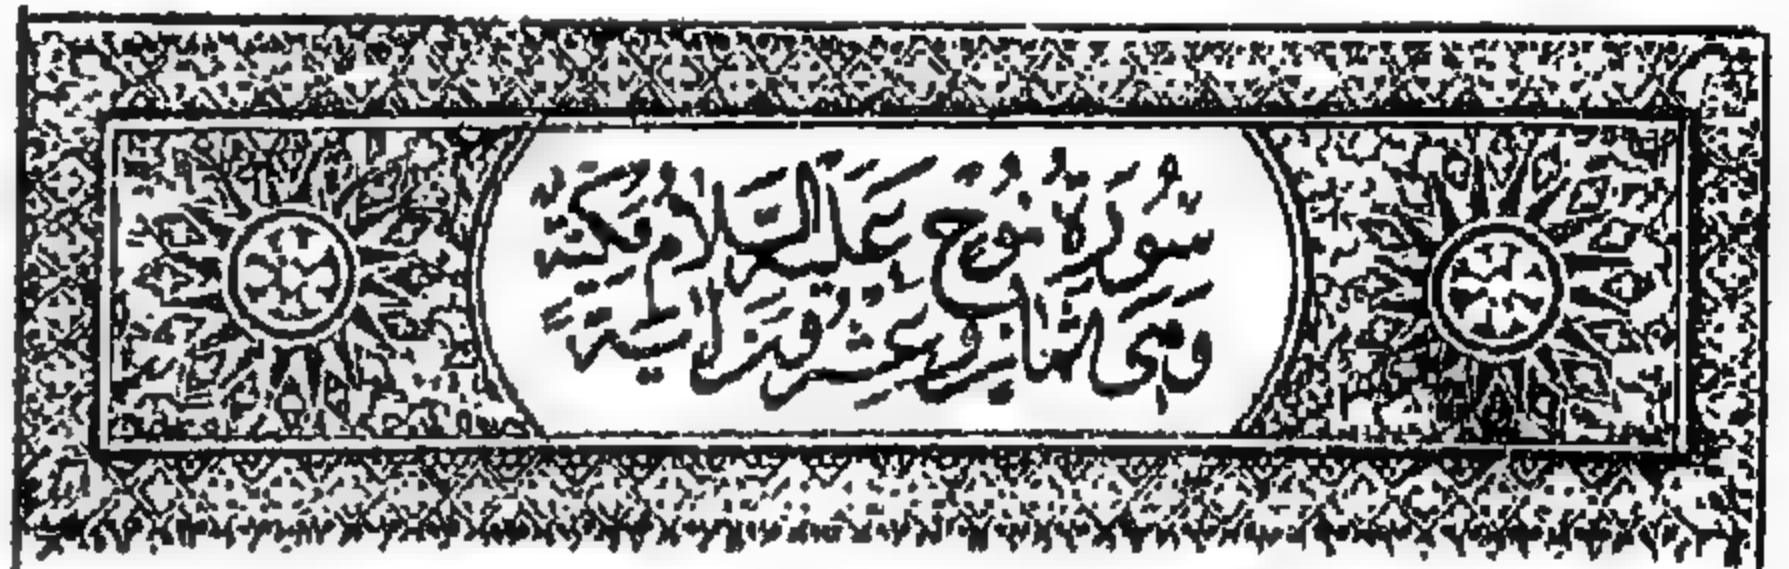 سُورَةُ نُوحٍ عَلَيْهِ السَّلَامُ مَكِّيَّةٌ
وَهِيَ ثَمَانٍ وَعِشْرُونَ آيَةً